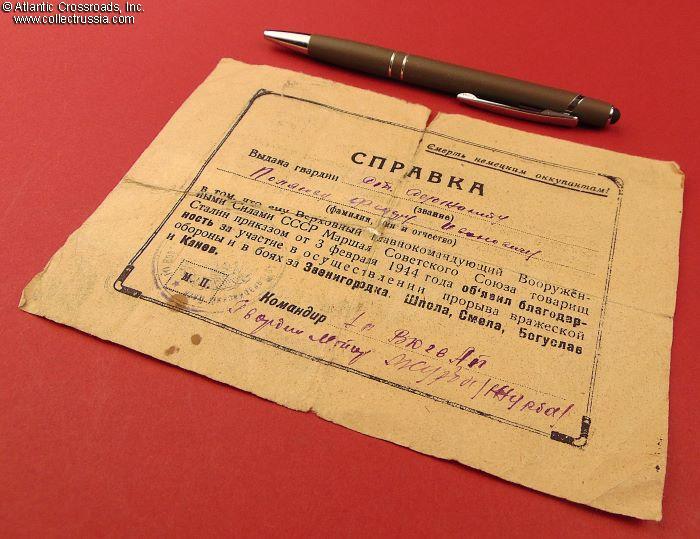 © Atlantic Crossroads, Inc.
www.collectrussia.com
Смерть немецким оккупантам!
СПРАВКА
Выдана гвардии
(звание)
(фамилия, имя и отчество)
в том, что ему Верховный Главнокомандующий Вооружён-
ными Силами СССР Маршал Советского Союза товарищ
Сталин приказом от 3 февраля 1944 года объявил благодар-
ность за участие в осуществлении прорыва вражеской
обороны и в боях за Звенигородка, Шпола, Смела, Богуслав
и Канев.
М. П.
Командир
Гвардии Майор Журба /Журба/